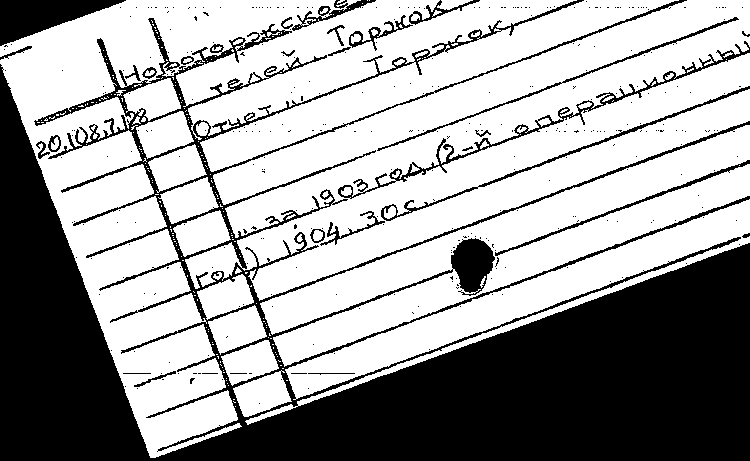 Новоторжское
телей. Торжок.
20.108.7.128 Отчет... Торжок,
... за 1903 год. (2-й операционный
год). 1904. 30 с.